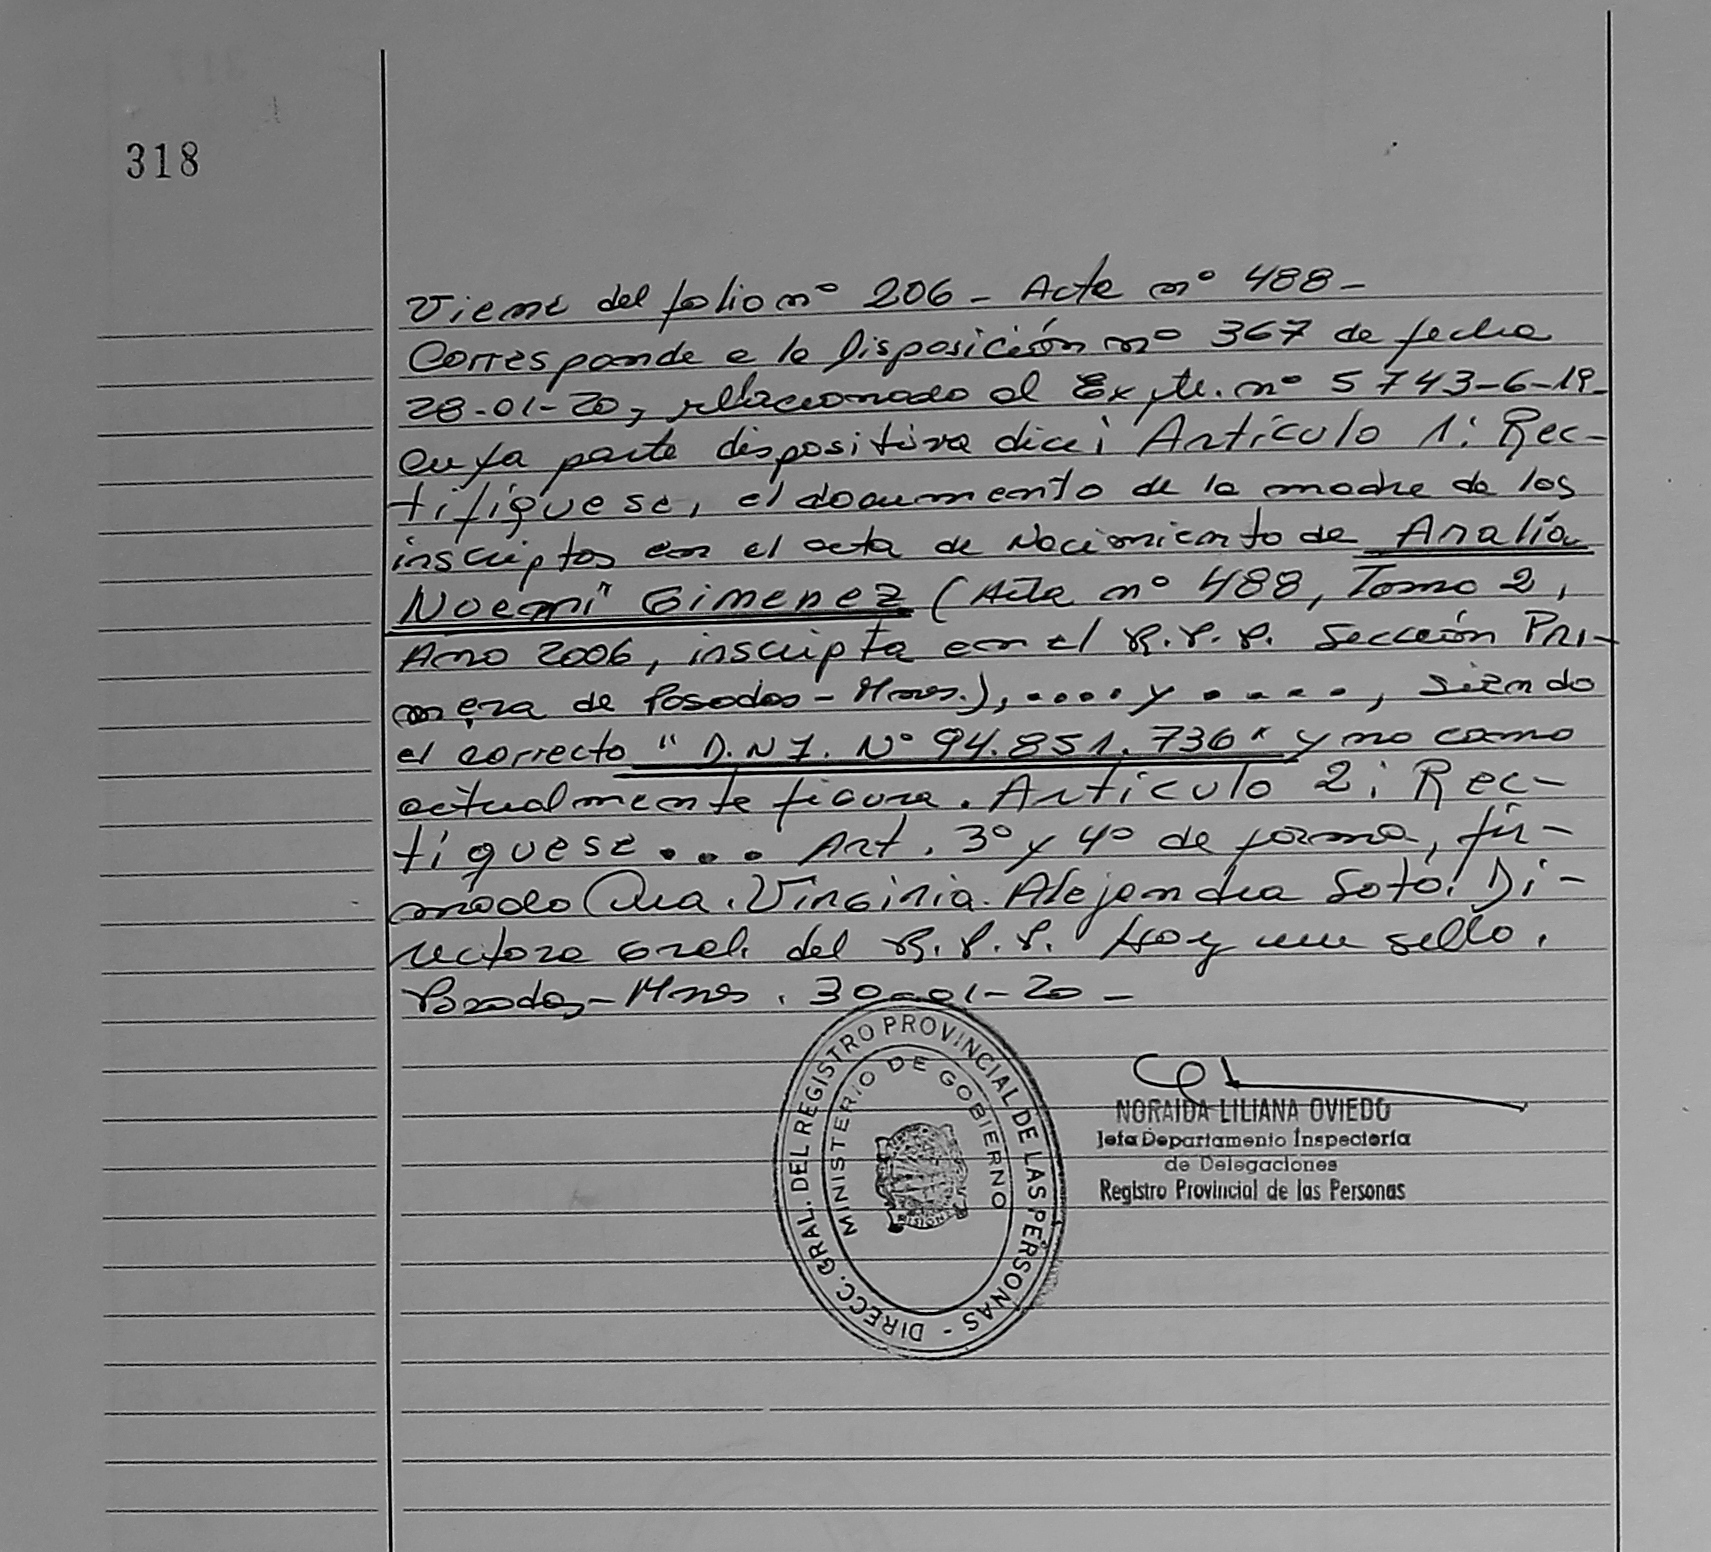 318
Viene del folio nº 206 - Acta nº 488 -
Corresponde a la Disposición nº 367 de fecha
28-01-20, rellacionado al Expte. nº 5743-6-19-
cuya parte dispositiva dice: Artículo 1: Rec-
tifíquese, el documento de la madre de los
inscriptos en el acta de Nacimiento de Analía
Noemí Gimenez (Acta nº 488, Tomo 2,
Año 2006, inscripta en el R.P.P. Sección Pri-
mera de Posadas - Mnes.), .... y ....., siendo
el correcto "D.N.I. Nº 94.851.736" y no como
actualmente figura. Artículo 2: Rec-
tíquese ... Art. 3º y 4º de forma, fir-
mado Dra. Virginia Alejandra Soto. Di-
rectora Gral. del R.P.P. Hay un sello.
Posadas - Mnes. 30-01-20 -
DIRECC. GRAL. DEL REGISTRO PROVINCIAL DE LAS PERSONAS -
MINISTERIO DE GOBIERNO
MISIONES
NORAIDA LILIANA OVIEDO
Jefa Departamento Inspectoría
de Delegaciones
Registro Provincial de las Personas